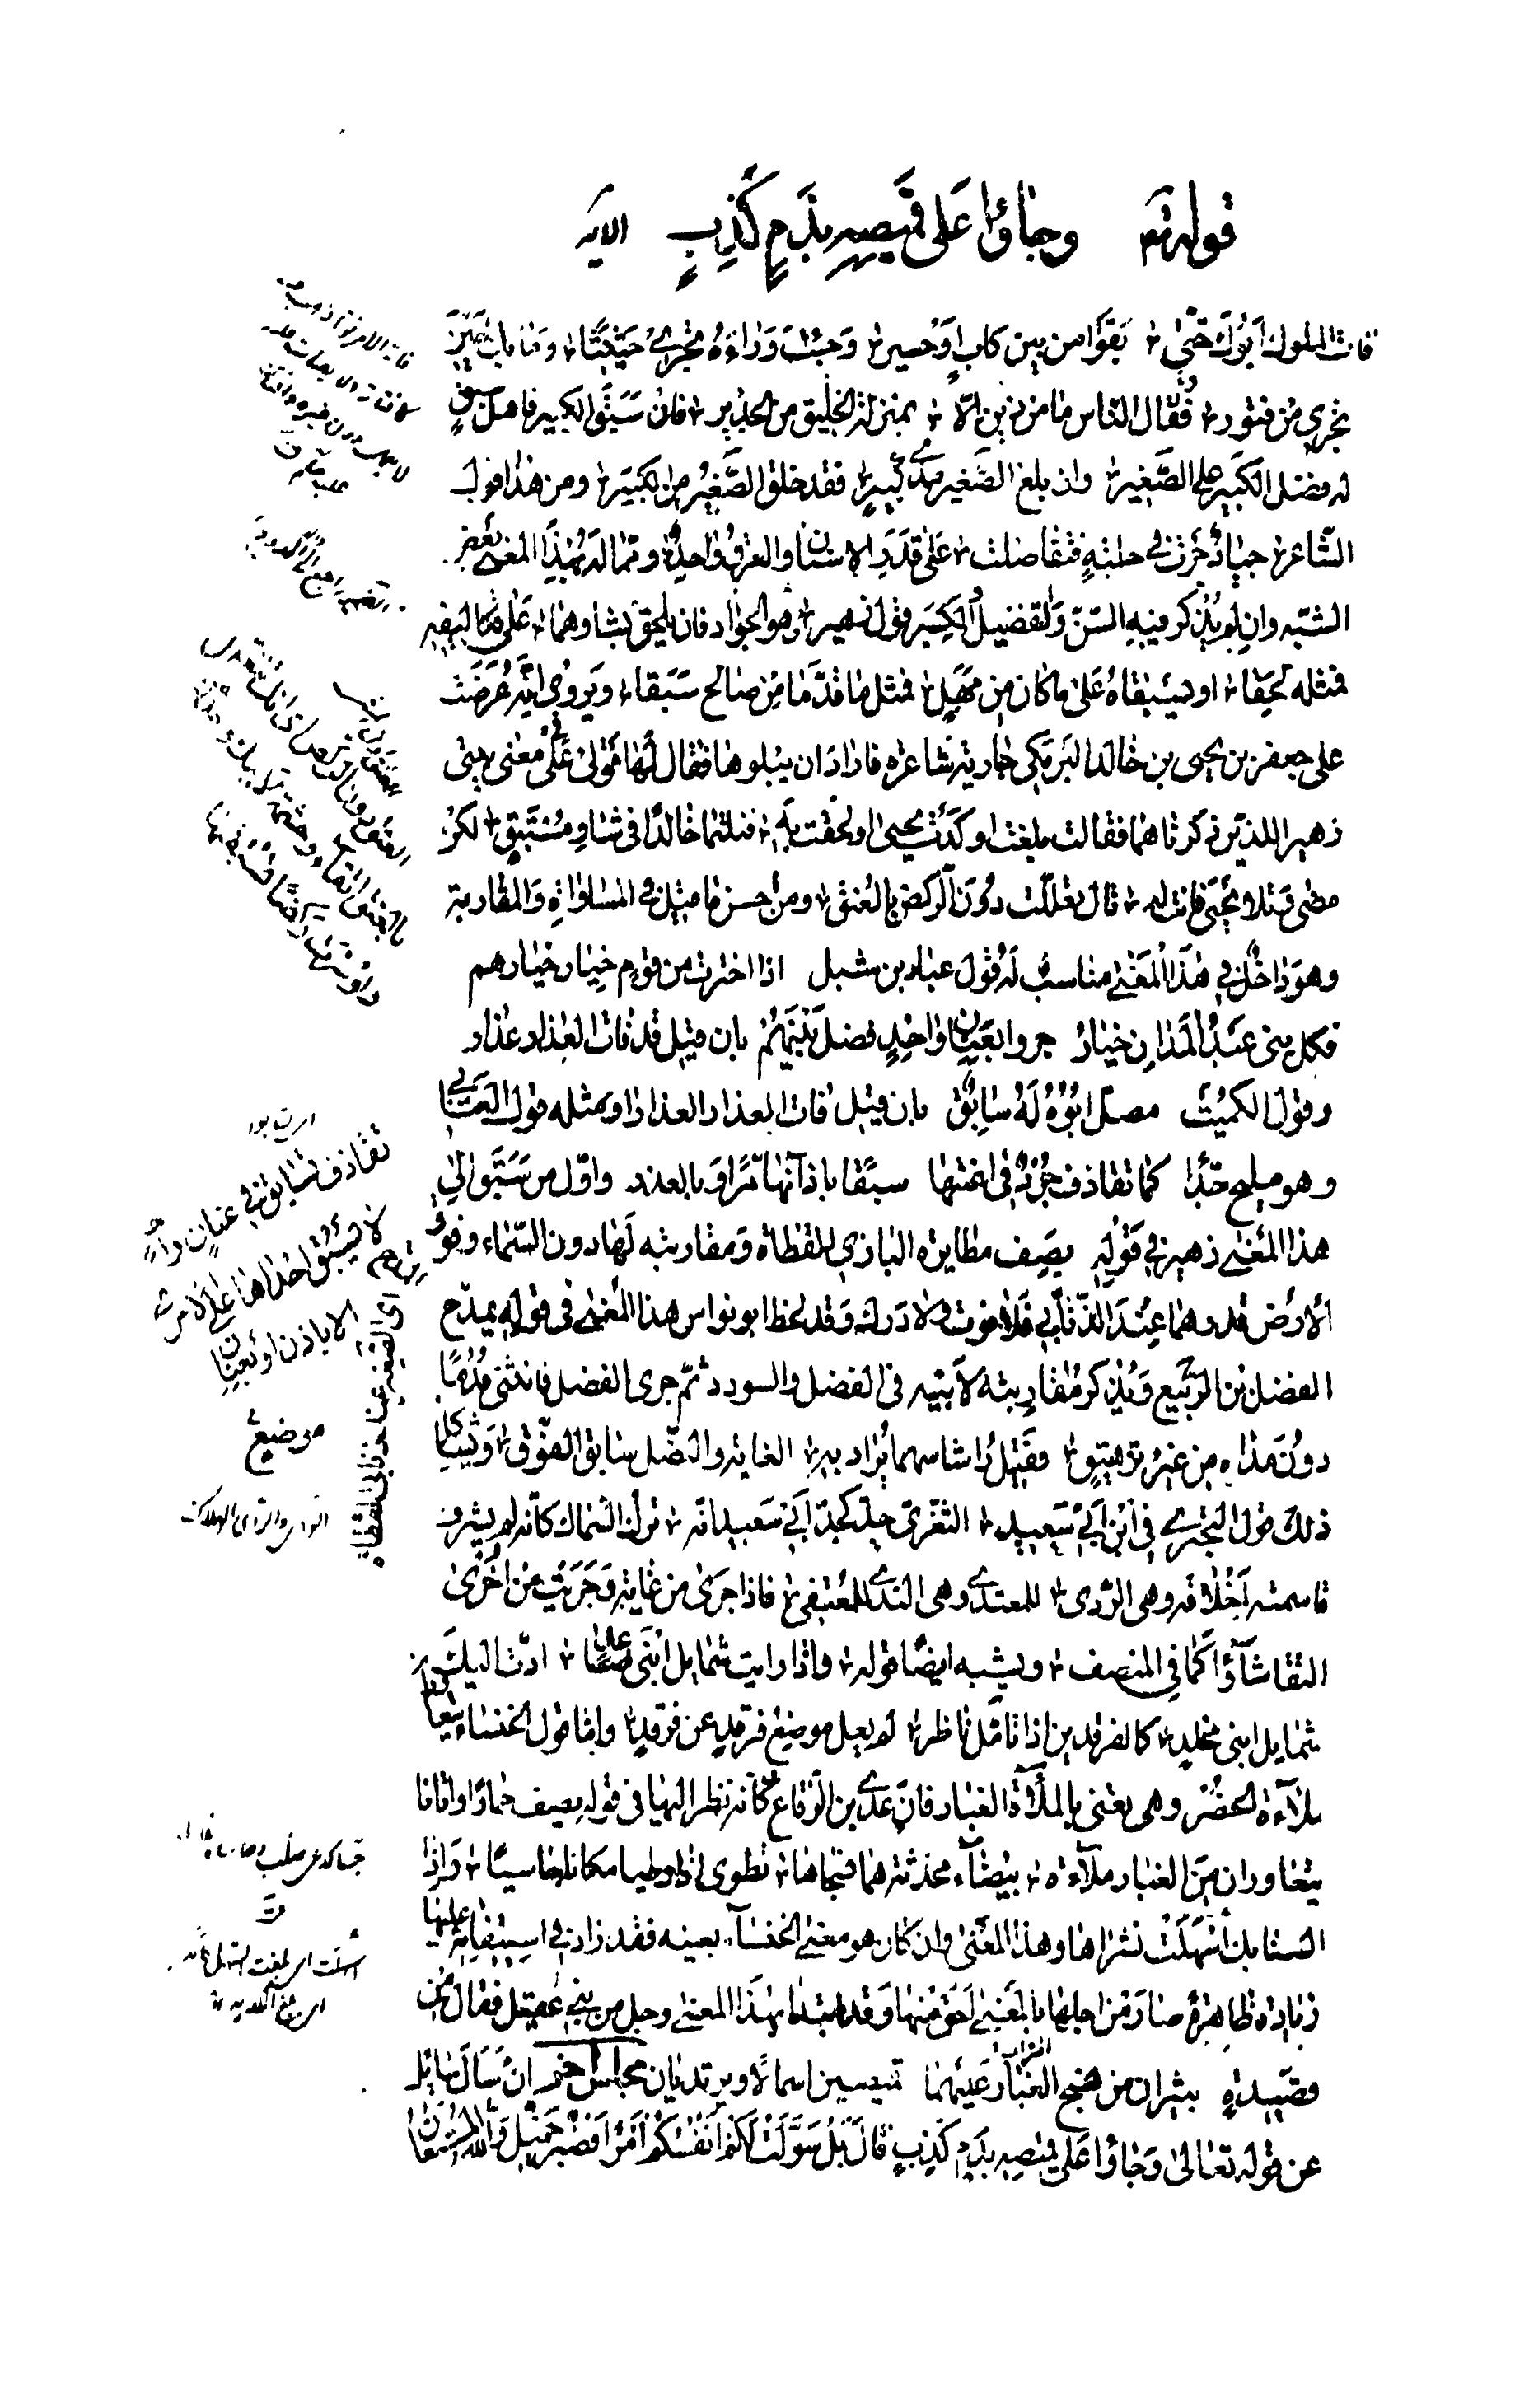 قوله تعالى وجاؤا على قميصه بدم كذب الاية
فات الملوك ابوك حتى بقوا من بين كاب او حسير وجئت وراءه تجري حثيثا وما بك حين
تجري من فتور فقال الناس ما من بن الا بمنزلة الخليق من الجدير فان سبق الكبير فاهل سبق
له فضل الكبير على الصغير وان بلغ الصغير مدى كبير فقد خلق الصغير من الكبير ومن هذا قول
الشاعر جياد جرت في حلبة فتفاضلت على قدر الاسنان والعرق واحد ومما له بهذا المعنى بعض
الشبه وان لم يذكر فيه السن وتفضيل الكبير قول زهير هو الجواد فان يلحق بشاوهما على تكاليفه
فمثله لحقا او يسبقاه على ما كان من مهل فمثل ما قدما من صالح سبقا ويروى انه عرضت
على جعفر بن يحيى بن خالد البرمكي جارية شاعرة فاراد ان يبلوها فقال لها قولي في معنى بيتي
زهير اللذين ذكرناهما فقالت بلغت او كدت يحيى او لحقت به فنلتما خالدا في شاو مستبق لكن
مضى وتلا يحيى فانت له تال تعللت دون الركض بالعنق ومن احسن ما قيل في المساواة والمقاربة
وهو داخل في هذا المعنى مناسب له قول عباد بن شبل اذا اخترت من قوم خيار خيارهم
فكل بني عبد المدان خيار جروا بعنان واحد فضل بينهم بان قيل قد فات العذار عذار
وقول الكميت مصل ابوه له سابق بان قيل فات العذار العذارا ومثله قول العتابي
وهو مليح جدا كما تقاذف جرد في اعنتها سبقا باذانها مرا وبالعذر واول من سبق الى
هذا المعنى زهير في قوله يصف مطايرة البازي للقطاة ومقاربته لها دون السماء وفوق
الارض قدرهما عند الذنابى فلا فوت ولا درك وقد لحظ ابو نواس هذا المعنى في قوله يمدح
الفضل بن الربيع ويذكر مقاربته لابيه في الفضل والسودد ثم جرى الفضل فانثنى قدما
دون مداه من غير ترهيق فقيل راشا سهما يراد به الغاية والنصل سابق الفوق ويشاكل
ذلك قول البحتري في ابن ابي سعيد الثغري جد كجد ابي سعيد انه ترك السماك كانه لم يشرف
قاسمته اخلاقه وهي الردى للمعتدي وهي الندى للمعتفي فاذا جرى من غاية وجريت من اخرى
التقا شاؤا كما في المنصف ويشبه ايضا قوله واذا رايت شمايل ابني صاعد ادت اليك
شمايل ابني مخلد كالفرقدين اذا تامل ناظر لم يعل موضع فرقد عن فرقد واما قول الخنساء يتعاوران
ملاءة الحضر وهي تعني بالملاءة الغبار فان عدي بن الرقاع كانه نظر اليها في قوله يصف حمارا واتانا
يتعاوران من الغبار ملاءة بيضاء محدثة هما نسجاها تطوى اذا وطيا مكانا جاسيا واذا
السنابك اسهلت نشراها وهذا المعنى وان كان هو معنى الخنساء بعينه فقد زاد في استيفائه عليها
زيادة ظاهرة صار من اجلها بالمعنى احق منها وقد ابتدا بهذا المعنى رجل من بني عقيل فقال من
قصيدة يثيران من نسج الغبار عليهما قميصين اسمالا ويرتديان مجلس اخر ان سال سايل
عن قوله تعالى وجاؤا على قميصه بدم كذب قال بل سولت لكم انفسكم امرا فصبر جميل والله المستعان
تقاذف تسابق في عنان واحد
لا تسبق احداها على الاخرى
الا باذن او بعنان
موضع